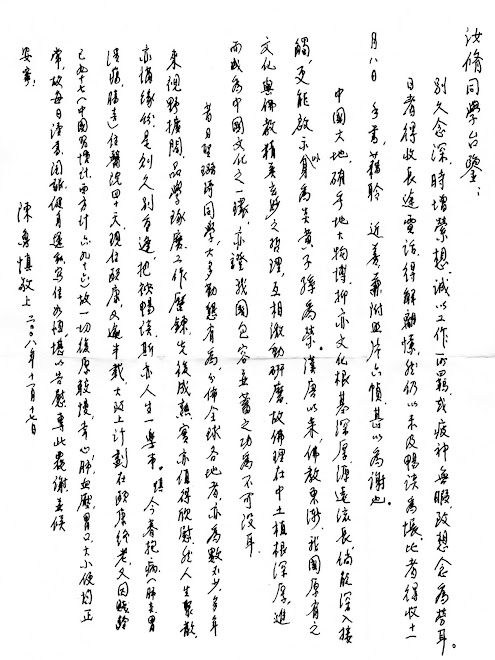 汝脩同學台鑒：
別久念深，時增縈想，誠以工作所羈，或疲神無暇，致想念為勞耳。
日者得收長途電話，得解翹懷，然仍以未及暢談為悵，比者得收十一
月八日手書，藉聆近益，兼附玉片六幀，甚以為謝也。
中國大地，確乎地大物博，抑亦文化根基深厚，源遠流長，倘能深入接
觸，更能啟示以身為炎黃子孫為榮。漢唐以來佛教東漸，我國原有之
文化與佛教精義玄妙之哲理，互相激勵研磨，故佛理在中土植根深厚，進
而成為中國文化之一環，亦證我國包容並蓄之功為不可沒耳。
昔日聖璐琦同學，大多勤懇有為，分佈全球各地者，亦為數不少，多年
來視野擴闊，品學琢磨，工作歷鍊，先後成熟，實亦值得欣慰，然人生聚散，
亦憑緣份，是別久別有逢，把歡暢談，斯亦人生一樂事。歲今春抱病（肺炎胃
潰瘍腸炎）住醫院四十天，現住頤康又逾半載，大致上計劃在頤康終老，又因賤齡
已九十七（中國習慣計，西方計六九之六），故一切復原較慢，幸心、肺、血壓、胃口、大小便均正
常，故每日讀書閱報，健身運動，寫作為恒，堪以告慰，專此裁謝，並候
安寧！
陳魯慎敬上 二〇〇八年十一月十七日